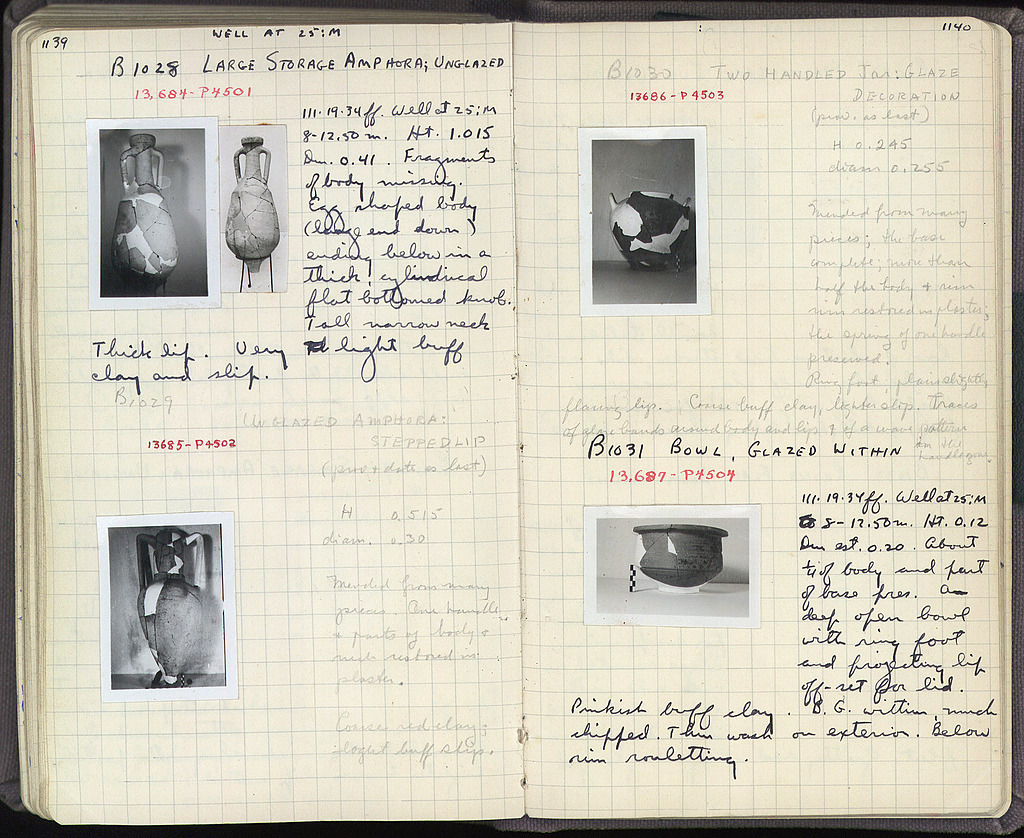 1139
WELL AT 25:M
B1028 LARGE STORAGE AMPHORA; UNGLAZED
13,684-P4501
111.19.34ff. Well at 25:M
8-12.50 m. Ht. 1.015
Dm. 0.41. Fragments
of body missing.
Egg shaped body
(large end down)
ending below in a
thick, cylindrical
flat bottomed knob.
Tall narrow neck
Thick lip. Very light buff
clay and slip.
B1029
UNGLAZED AMPHORA:
13685-P4502
STEPPED LIP
(prov + date as last)
H 0.515
diam. 0.30
Mended from many
pieces. One handle
+ parts of body +
neck restored in
plaster.
Coarse red clay;
light buff slip.
1140
B1030 TWO HANDLED JAR: GLAZE
13686-P4503
DECORATION
(prov. as last)
H 0.245
diam 0.255
Mended from many
pieces; the base
complete; more than
half the body + rim
restored in plaster;
the spring of one handle
preserved.
Ring foot, plain slightly
flaring lip. Coarse buff clay, lighter slip. Traces
of glaze bands around body and lip + of a wave pattern
in the
handlezone.
B1031 BOWL, GLAZED WITHIN
13,687-P4504
111.19.34ff. Well at 25:M
8-12.50m. Ht. 0.12
Dm est. 0.20. About
¼ of body and part
of base pres. A
deep open bowl
with ring foot
and projecting lip
off-set for lid.
Pinkish buff clay. B.G. within, much
chipped. Thin wash on exterior. Below
rim rouletting.